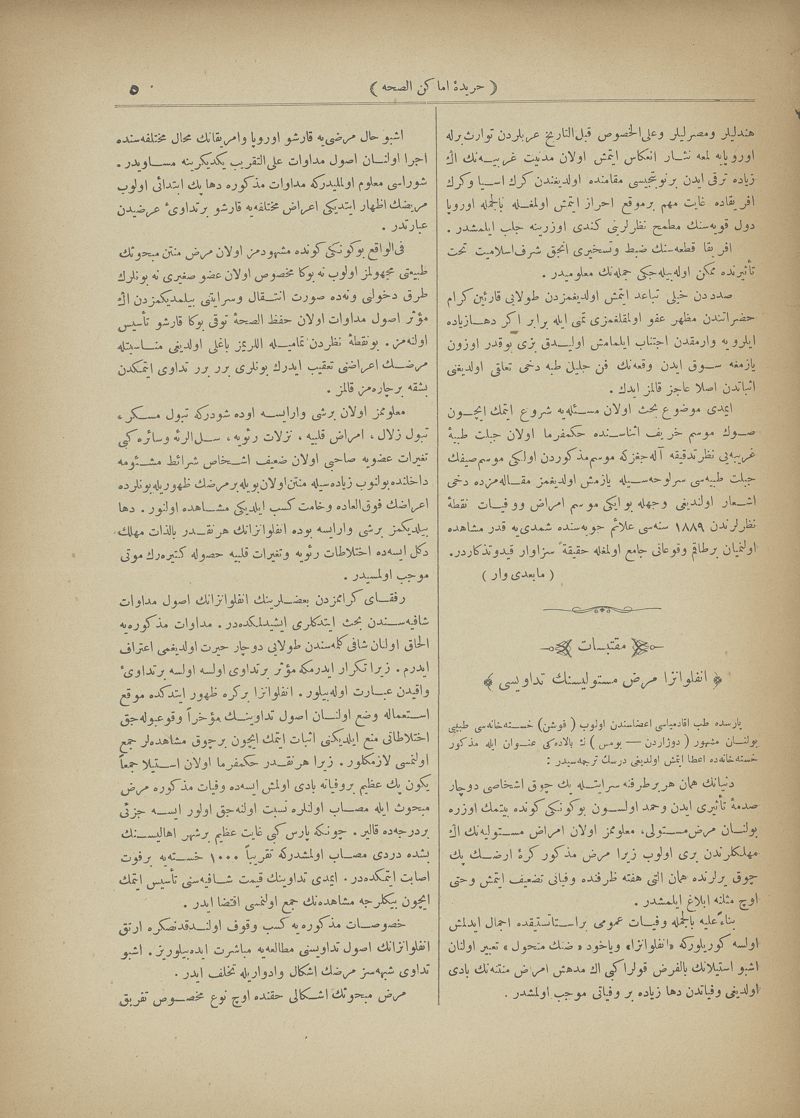 ( جريدهٔ اماكن الصحه )
٥
هنديلر ومصريلر وعلى الخصوص قبل التاريخ عربلردن توارث برله
اوروپايه لمعه نثار انعكاس ايتمش اولان مدنيت غربيه نك اك
زياده ترقى ايدن بر نتيجسى مقامنده اولديغندن كرك اسيا وكرك
افريقاده غايت مهم برموقع احراز ايتمش اولمغله بالجمله اوروپا
دول قويه سنك مطمح نظرلرينى كندى اوزرينه جلب ايلمشدر .
افريقا قطعه سنك ضبط وتسخيرى انجق شرف اسلاميت تحت
تأثيرنده ممكن اوله بيله جكى جمله نك معلوميدر .
صددن خيلى تباعد ايتمش اولديغمزدن طولايى قارئين كرام
حضراتندن مظهر عفو اولمقلغمزى تمنى ايله برابر اكر دها زياده
ايلرويه وارمقدن اجتناب ايلمامش اوليدق بزى بوقدر اوزون
يازمغه سوق ايدن وقعه نك فن جليل طبه دخى تعلقى اولديغنى
اثباتدن اصلا عاجز قالمز ايدك .
ايمدى موضوع بحث اولان مسئله يه شروع ايتمك ايچون
صوك موسم خريف اثناسنده حكمفرما اولان جبلت طبيهٔ
غريبه يى نظر تدقيقه آله جغزكه موسم مذكوردن اولكى موسم صيفك
جبلت طبيه سى سرلوحه سيله يازمش اولديغمز مقاله مزده دخى
اشعار اولنديغى وجهله بو ايكى موسم امراض ووفيات نقطهٔ
نظرلرندن ١٨٨٩ سنه سى علائم جويه سنده شمدى يه قدر مشاهده
اولنميان برطاقم وقوعاتى جامع اولمغله حقيقةً سزاوار قيد وتذكاردر.
( مابعدى وار )
مقتبسات
﴿ انفلوانزا مرض مستوليسنك تداويسى ﴾
پارسده طب اقادمياسى اعضاسندن اولوب ( قوشن ) خسته خانه سى طبيبى
بولنان مشهور ( دوژاردن — بومس ) ك بالاده كى عنوان ايله مذكور
خسته خانه ده اعطا ايتمش اولديغى درسك ترجمه سيدر :
دنيانك همان هر طرفنه سرايتله پك چوق اشخاصى دوچار
صدمهٔ تأثيرى ايدن وحمد اولسون بوكونكى كونده بيتمك اوزره
بولنان مرض مستولى، معلوممز اولان امراض مستوليه نك اك
مهلكلرندن برى اولوب زيرا مرض مذكور كرهٔ ارضك پك
چوق يرلرنده همان التى هفته ظرفنده وفياتى تضعيف ايتمش وحتى
اوچ مثلنه ابلاغ ايلمشدر .
بناءً عليه بالجمله وفيات عمومى بر استاتستيقده اجمال ايدلمش
اولسه كوريلوركه «انفلوانزا» وياخود «ضنك منحول» تعبير اولنان
اشبو استيلانك بالفرض قولرا كبى اك مدهش امراض منتنه نك بادى
اولديغى وفياتدن دها زياده بر وفياتى موجب اولمشدر .
اشبو حال مرضى يه قارشو اوروپا وامريقانك محال مختلفه سنده
اجرا اولنان اصول مداوات على التقريب يكديكرينه مساويدر .
شوراسى معلوم اولمليدركه مداوات مذكوره دها پك ابتدائى اولوب
مريضك اظهار ايتديكى اعراض مختلفه يه قارشو بر تداوىٔ عرضيدن
عبارتدر .
فى الواقع بوكونكى كونده مشهودمز اولان مرض منتن مبحوثك
طبيعتى مجهولمز اولوب نه بوكا مخصوص اولان عضو صغيرى نه بونلرك
طرق دخولى ونه ده صورت انتقال وسرايتى بيلمديكمزدن اك
مؤثر اصول مداوات اولان حفظ الصحهٔ توقى بوكا قارشو تأسيس
اولنه مز . بو نقطهٔ نظردن تماميله اللريمز باغلى اولديغى مناسبتله
مرضك اعراضنى تعقيب ايدرك بونلرى برر برر تداوى ايتمكدن
بشقه برچاره مز قالمز .
معلوممز اولان برشى وارايسه اوده شودركه تبول مسكر،
تبول زلال ، امراض قلبيه ، نزلات رئويه ، سل الرئه وسائره كبى
تغيرات عضويه صاحبى اولان ضعيف اشخاص شرائط مشئومه
داخلنده بولنوب زياده سيله منتن اولان بويله بر مرضك ظهوريله بونلرده
اعراضك فوق العاده وخامت كسب ايلديكى مشاهده اولنور . دها
بيلديكمز برشى وارايسه بوده انفلوانزانك هر نقدر بالذات مهلك
دكل ايسه ده اختلاطات رئويه وتغيرات قلبيه حصوله كتيره رك موتى
موجب اولمسيدر .
رفقاى كرامزدن بعضلرينك انفلوانزانك اصول مداوات
شافيه سندن بحث ايتدكلرى ايشيدلمكده در . مداوات مذكوره يه
الحاق اولنان شافى كله سندن طولايى دوچار حيرت اولديغمى اعتراف
ايدرم . زيرا تكرار ايدرمكه مؤثر برتداوى اولسه اولسه برتداوىٔ
واقيدن عبارت اوله بيلور . انفلوانزا بركره ظهور ايتدكده موقع
استعماله وضع اولنان اصول تداوينك مؤخراً وقوعبوله جق
اختلاطاتى منع ايلديكنى اثبات ايتمك ايچون برچوق مشاهده لر جمع
اولنمسى لازمكلور . زيرا هر نقدر حكمفرما اولان استيلا جمعاً
يكون پك عظيم بر وفياته بادى اولمش ايسه ده وفيات مذكوره مرض
مبحوث ايله مصاب اولنلره نسبت اولنه جق اولور ايسه جزئى
بر درجه ده قالير . چونكه پارس كبى غايت عظيم بر شهر اهاليسنك
بشده دردى مصاب اولمشدركه تقريباً ١٠٠٠ خسته يه بر فوت
اصابت ايتمكده در . ايمدى تداوينك قيمت شافيه سنى تأسيس ايتمك
ايچون بيكلرجه مشاهده نك جمع اولنمسى اقتضا ايدر .
خصوصات مذكوره يه كسب وقوف اولندقدنصكره ارتق
انفلوانزانك اصول تداويسنى مطالعه يه مباشرت ايده بيلوريز . اشبو
تداوى شبهه سز مرضك اشكال وادواريله تخلف ايدر .
مرض مبحوثك اشكالى حقنده اوچ نوع مخصوص تفريق